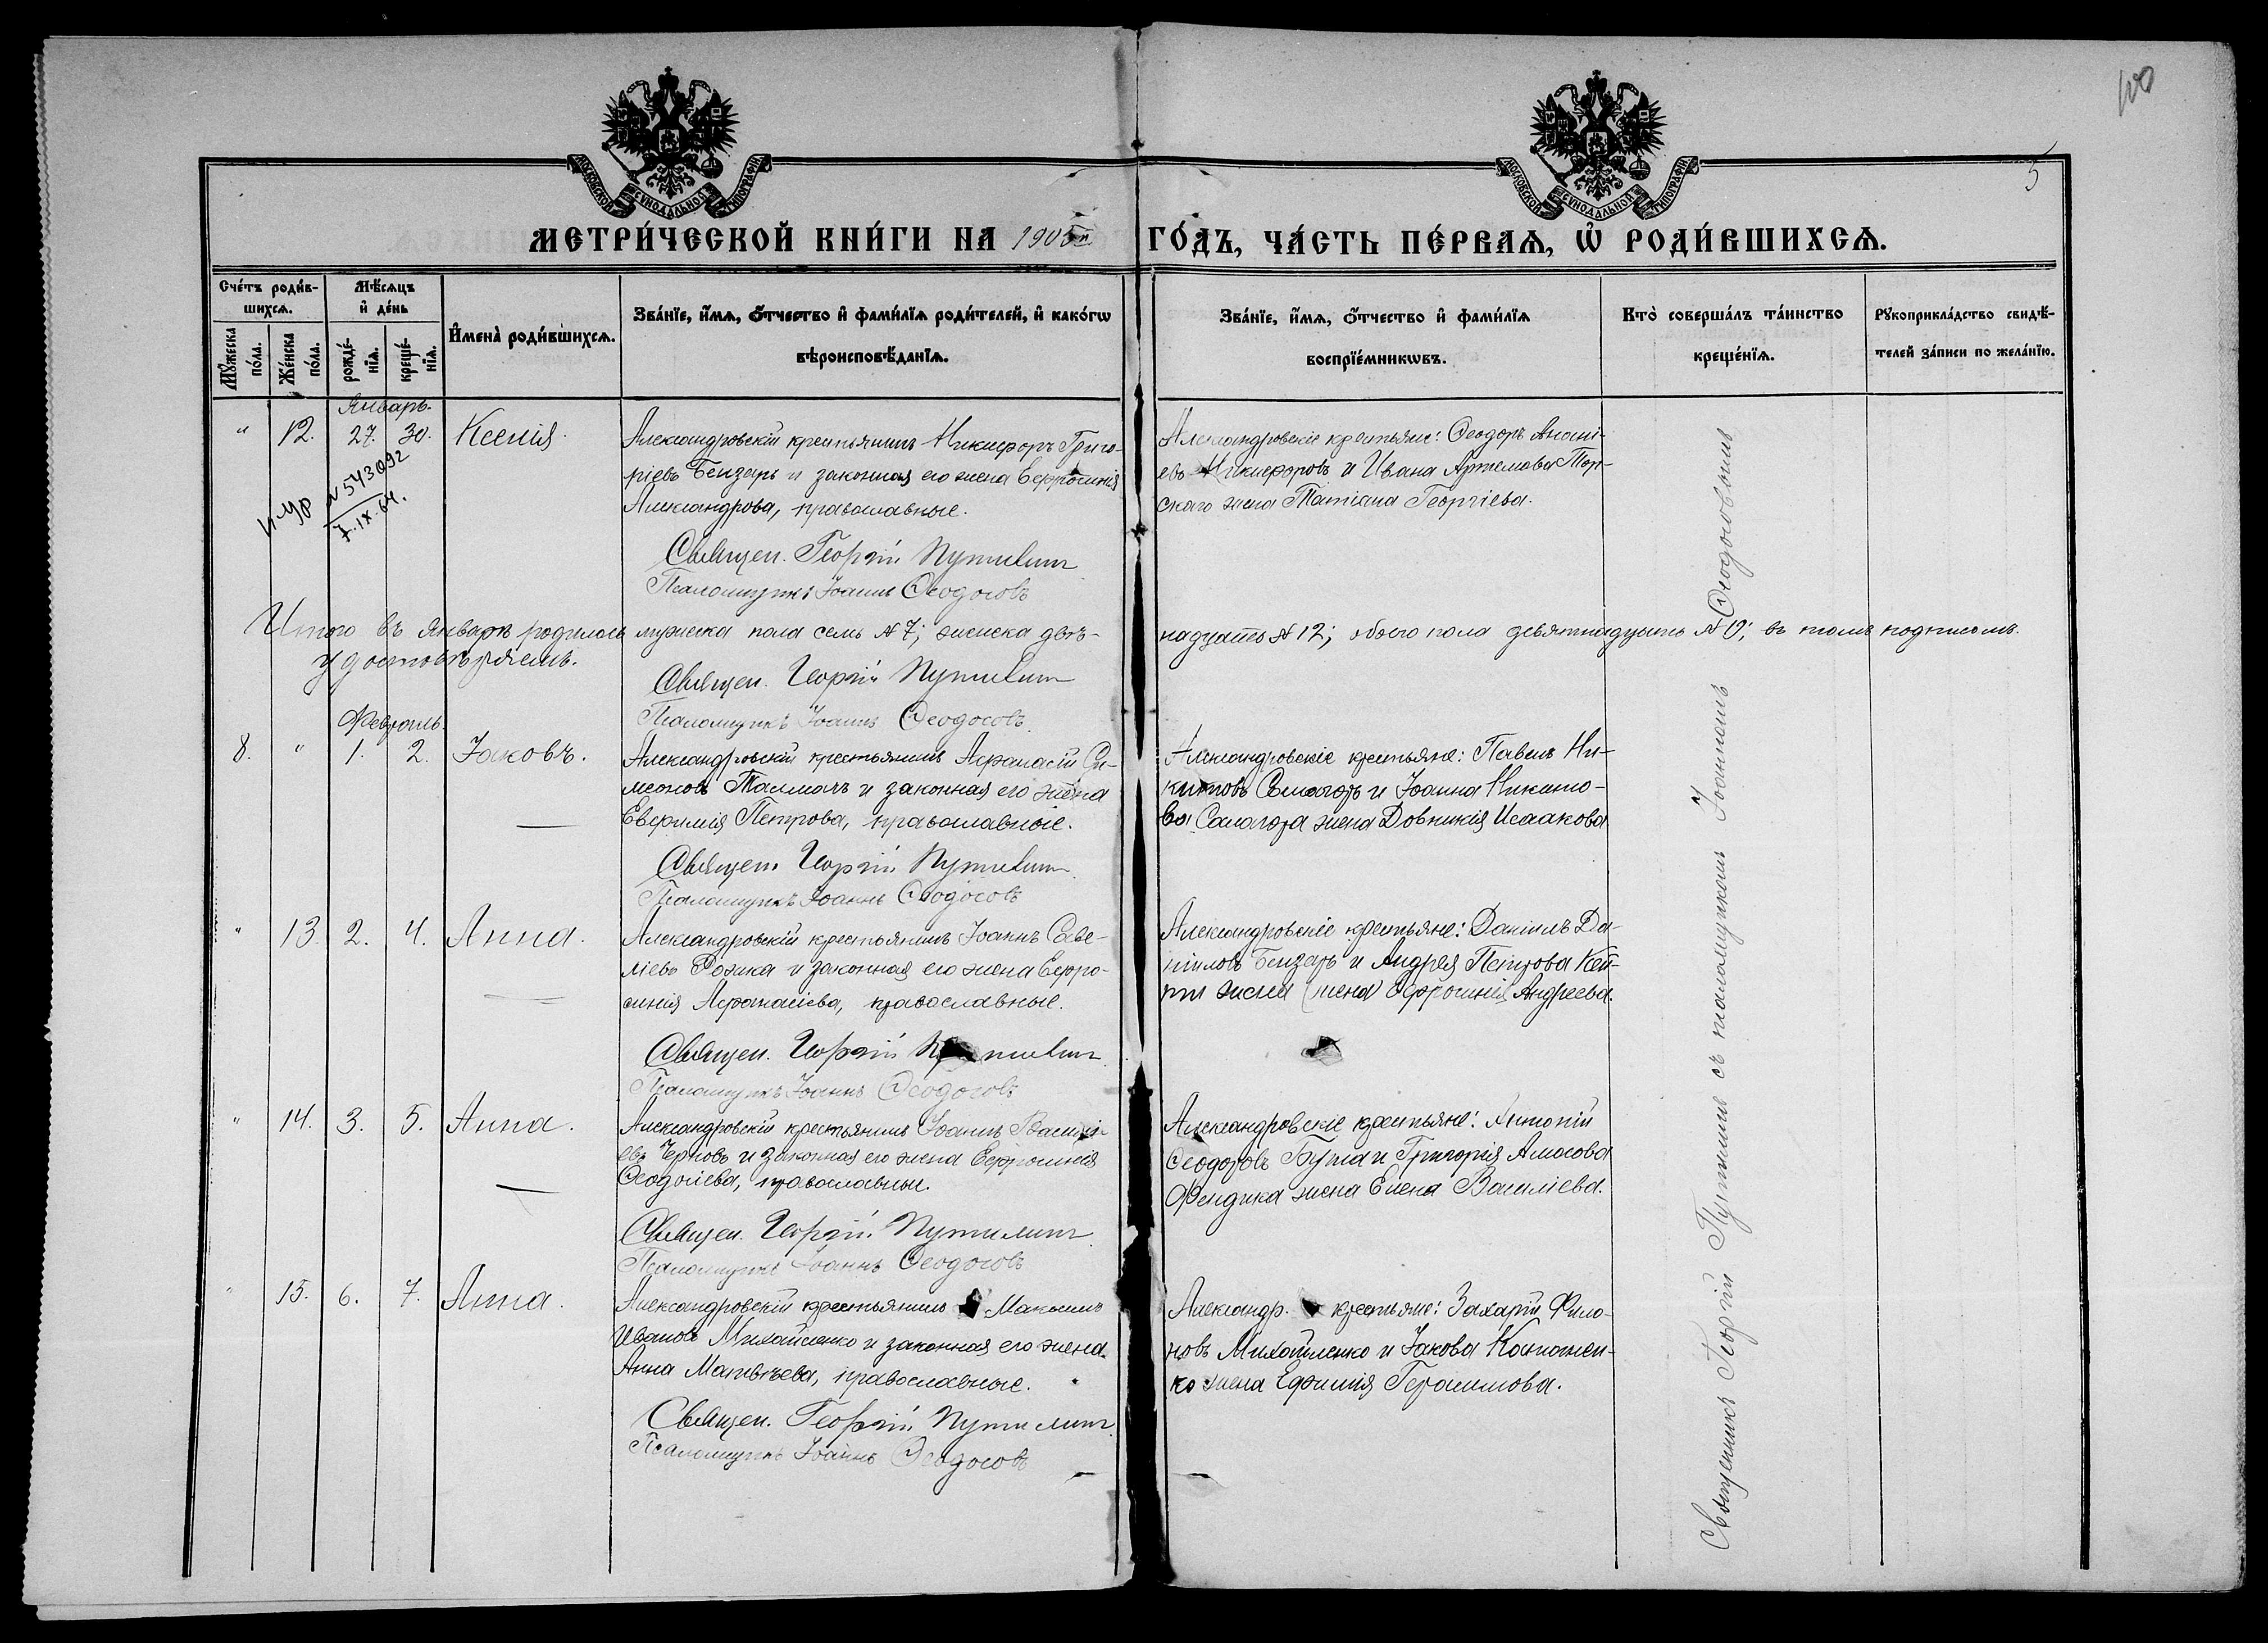 100
5
МОСКОВСКОЙ СѴНОДАЛЬНОЙ ТИПОГРАФІИ
МОСКОВСКОЙ СѴНОДАЛЬНОЙ ТИПОГРАФІИ
МЕТРИ́ЧЕСКОЙ КНИ́ГИ НА 190
ГО́ДЪ, ЧА́СТЬ ПЕ́РВАѦ, Ѡ РОДИ́ВШИХСѦ.
Сче́тъ роди́в-
шихсѧ.
Мꙋ́жеска по́ла.
Же́нска по́ла.
Мѣ́сѧцъ
и҆ де́нь
рожде́-
нїѧ.
креще́-
нїѧ.
И҆мена̀ роди́вшихсѧ.
Зва́нїе, и҆́мѧ, ѻ҆́тчество и҆ фами́лїѧ роди́телей, и҆ како́гѡ
вѣроисповѣ́данїѧ.
Зва́нїе, и҆́мѧ, ѻ҆́тчество и҆ фами́лїѧ
воспрїе́мникѡвъ.
Кто̀ соверша́лъ та́инство
креще́нїѧ.
Рꙋкоприкла́дство свидѣ́-
телей за́писи по жела́нїю.
Январь.
" 12. 27. 30. Ксенія.
№ 543092
7.IX.64.
Александровскій крестьянинъ Никифоръ Григо-
ріевъ Бензарь и законная его жена Евфросинія
Александрова, православные.
Священ. Георгій Путилинъ
Псаломщикъ Іоаннъ Ѳеодосовъ
Александровскіе крестьяне: Ѳеодоръ Анані-
евъ Никифоровъ и Ивана Артемова
скаго жена Татіана Георгіева.
Итого въ Январѣ родилось мужеска пола семь № 7; женска двѣ-
надцать № 12; обоего пола девятнадцать № 19; въ томъ подписомъ
удостовѣряемъ.
Священ. Георгій Путилинъ
Псаломщикъ Іоаннъ Ѳеодосовъ
Февраль.
8. " 1. 2. Іаковъ.
Александровскій крестьянинъ Афанасій Си-
меоновъ Талмачъ и законная его жена
Евфимія Петрова, православные.
Священ. Георгій Путилинъ
Псаломщикъ Іоаннъ Ѳеодосовъ
Александровскіе крестьяне: Павелъ Ни-
китовъ и Іоанна Никито-
ва жена Домникія Исаакова
" 13. 2. 4. Анна.
Александровскій крестьянинъ Іоаннъ Саве-
ліевъ Рожка и законная его жена Евфро-
синія Афанасіева, православные.
Священ. Георгій Путилинъ
Псаломщикъ Іоаннъ Ѳеодосовъ
Александровскіе крестьяне: Даніилъ Да-
ніиловъ Бензарь и Андрея Петрова
жена (жена) Ефросинія Андреева.
" 14. 3. 5. Анна.
Александровскій крестьянинъ Іоаннъ Василі-
евъ Черновъ и законная его жена Евфросинія
Ѳеодосіева, православные.
Священ. Георгій Путилинъ
Псаломщикъ Іоаннъ Ѳеодосовъ
Александровскіе крестьяне: Антоній
Ѳеодоровъ и Григорія Амосова
жена Елена Василіева.
" 15. 6. 7. Анна.
Александровскій крестьянинъ Максимъ
Ивановъ Михайленко и законная его жена
Анна Матвѣева, православные.
Священ. Георгій Путилинъ
Псаломщикъ Іоаннъ Ѳеодосовъ
Александр. крестьяне: Захарій Фило-
новъ Михайленко и Іакова
ко жена Ефимія Герасимова.
Священникъ Георгій Путилинъ съ псаломщикомъ Іоанномъ Ѳеодосовымъ